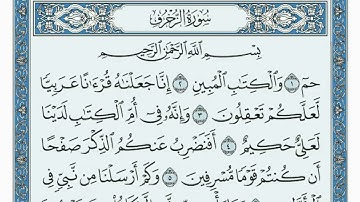 سُورَةُ الزُّخْرُفِ
بِسْمِ اللَّهِ الرَّحْمَٰنِ الرَّحِيمِ
حمٓ ١ وَٱلْكِتَٰبِ ٱلْمُبِينِ ٢ إِنَّا جَعَلْنَٰهُ قُرْءَٰنًا عَرَبِيًّا
لَّعَلَّكُمْ تَعْقِلُونَ ٣ وَإِنَّهُۥ فِىٓ أُمِّ ٱلْكِتَٰبِ لَدَيْنَا
لَعَلِىٌّ حَكِيمٌ ٤ أَفَنَضْرِبُ عَنكُمُ ٱلذِّكْرَ صَفْحًا
أَن كُنتُمْ قَوْمًا مُّسْرِفِينَ ٥ وَكَمْ أَرْسَلْنَا مِن نَّبِىٍّ فِى